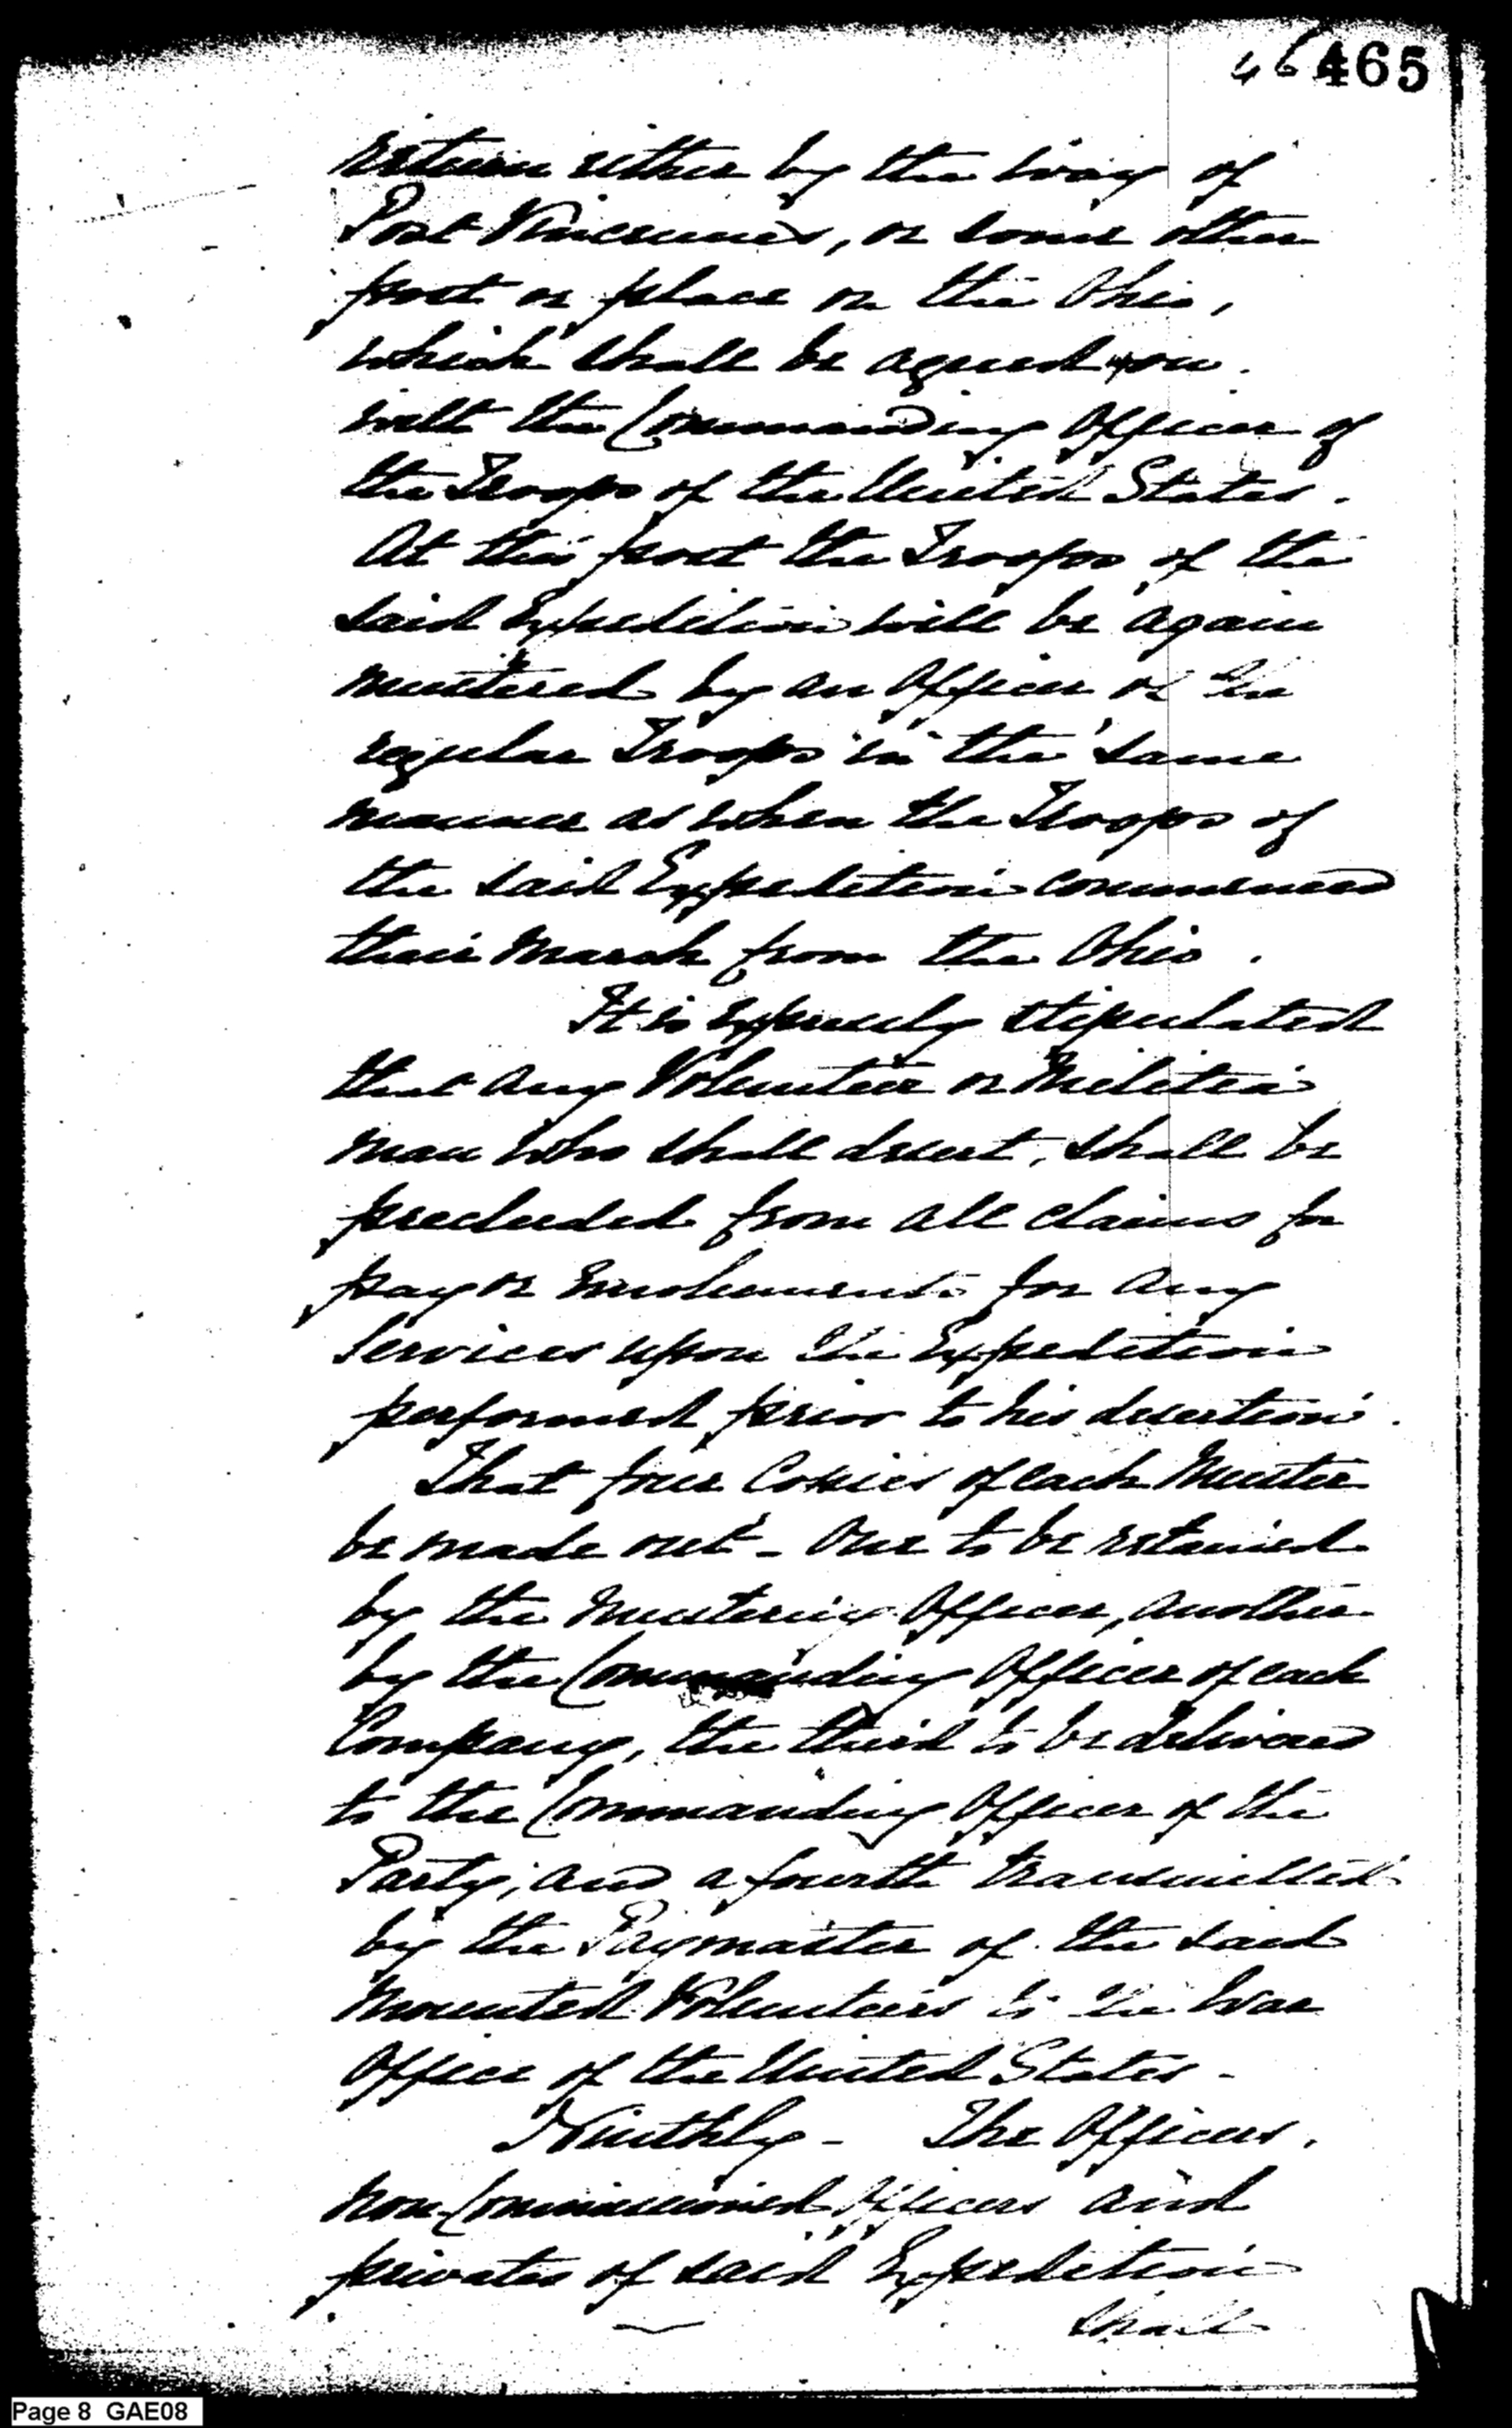 46 465
return either by the way of
Post Vincennes, or some other
post or place on the Ohio,
which shall be agreed upon.
with the Commanding Officer of
the Troops of the United States.
At this post the Troops of the
said Expedition will be again
mustered by an Officer of the
regular Troops in the same
manner as when the Troops of
the said Expedition commenced
their March from the Ohio.
It is expressly stipulated
that any Volunteer or Militia
man who shall desert, shall be
precluded from all claims for
pay or Emoluments for any
Services upon the Expedition
performed prior to his desertion.
That four Copies of each Muster
be made out - One to be retained
by the Mustering Officer, another
by the Commanding Officer of each
Company, the third to be delivered
to the Commanding Officer of the
Party, and a fourth transmitted
by the Paymaster of the said
Mounted Volunteers to the War
Office of the United States -
Ninthly - The Officers,
non-Commissioned Officers and
privates of said Expedition
shall
Page 8 GAE08